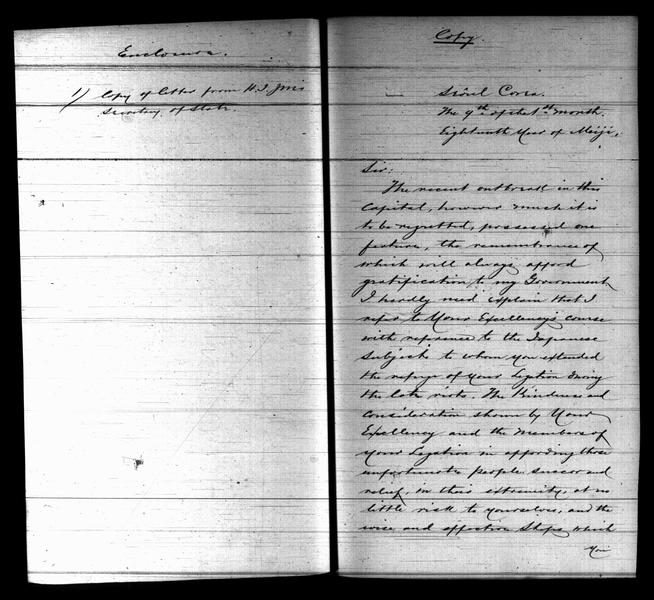 Enclosure.
1/ Copy of letter from H.I.J.M's
Secretary of State.
Copy.
Söul Corea.
The 9th of the 1st month.
Eighteenth Year of Meiji.
Sir:
The recent outbreak in this
Capital, however much it is
to be regretted, possessed one
feature, the remembrance of
which will always afford
gratification to my Government.
I hardly need explain that I
refer to Your Excellency's course
with reference to the Japanese
Subjects to whom you extended
the refuge of your Legation during
the late riots. The Kindness and
Consideration shown by Your
Excellency and the Members of
your Legation in affording those
unfortunate people succor and
relief, in their extremity, at no
little risk to yourselves, and the
wise and effective steps which
You